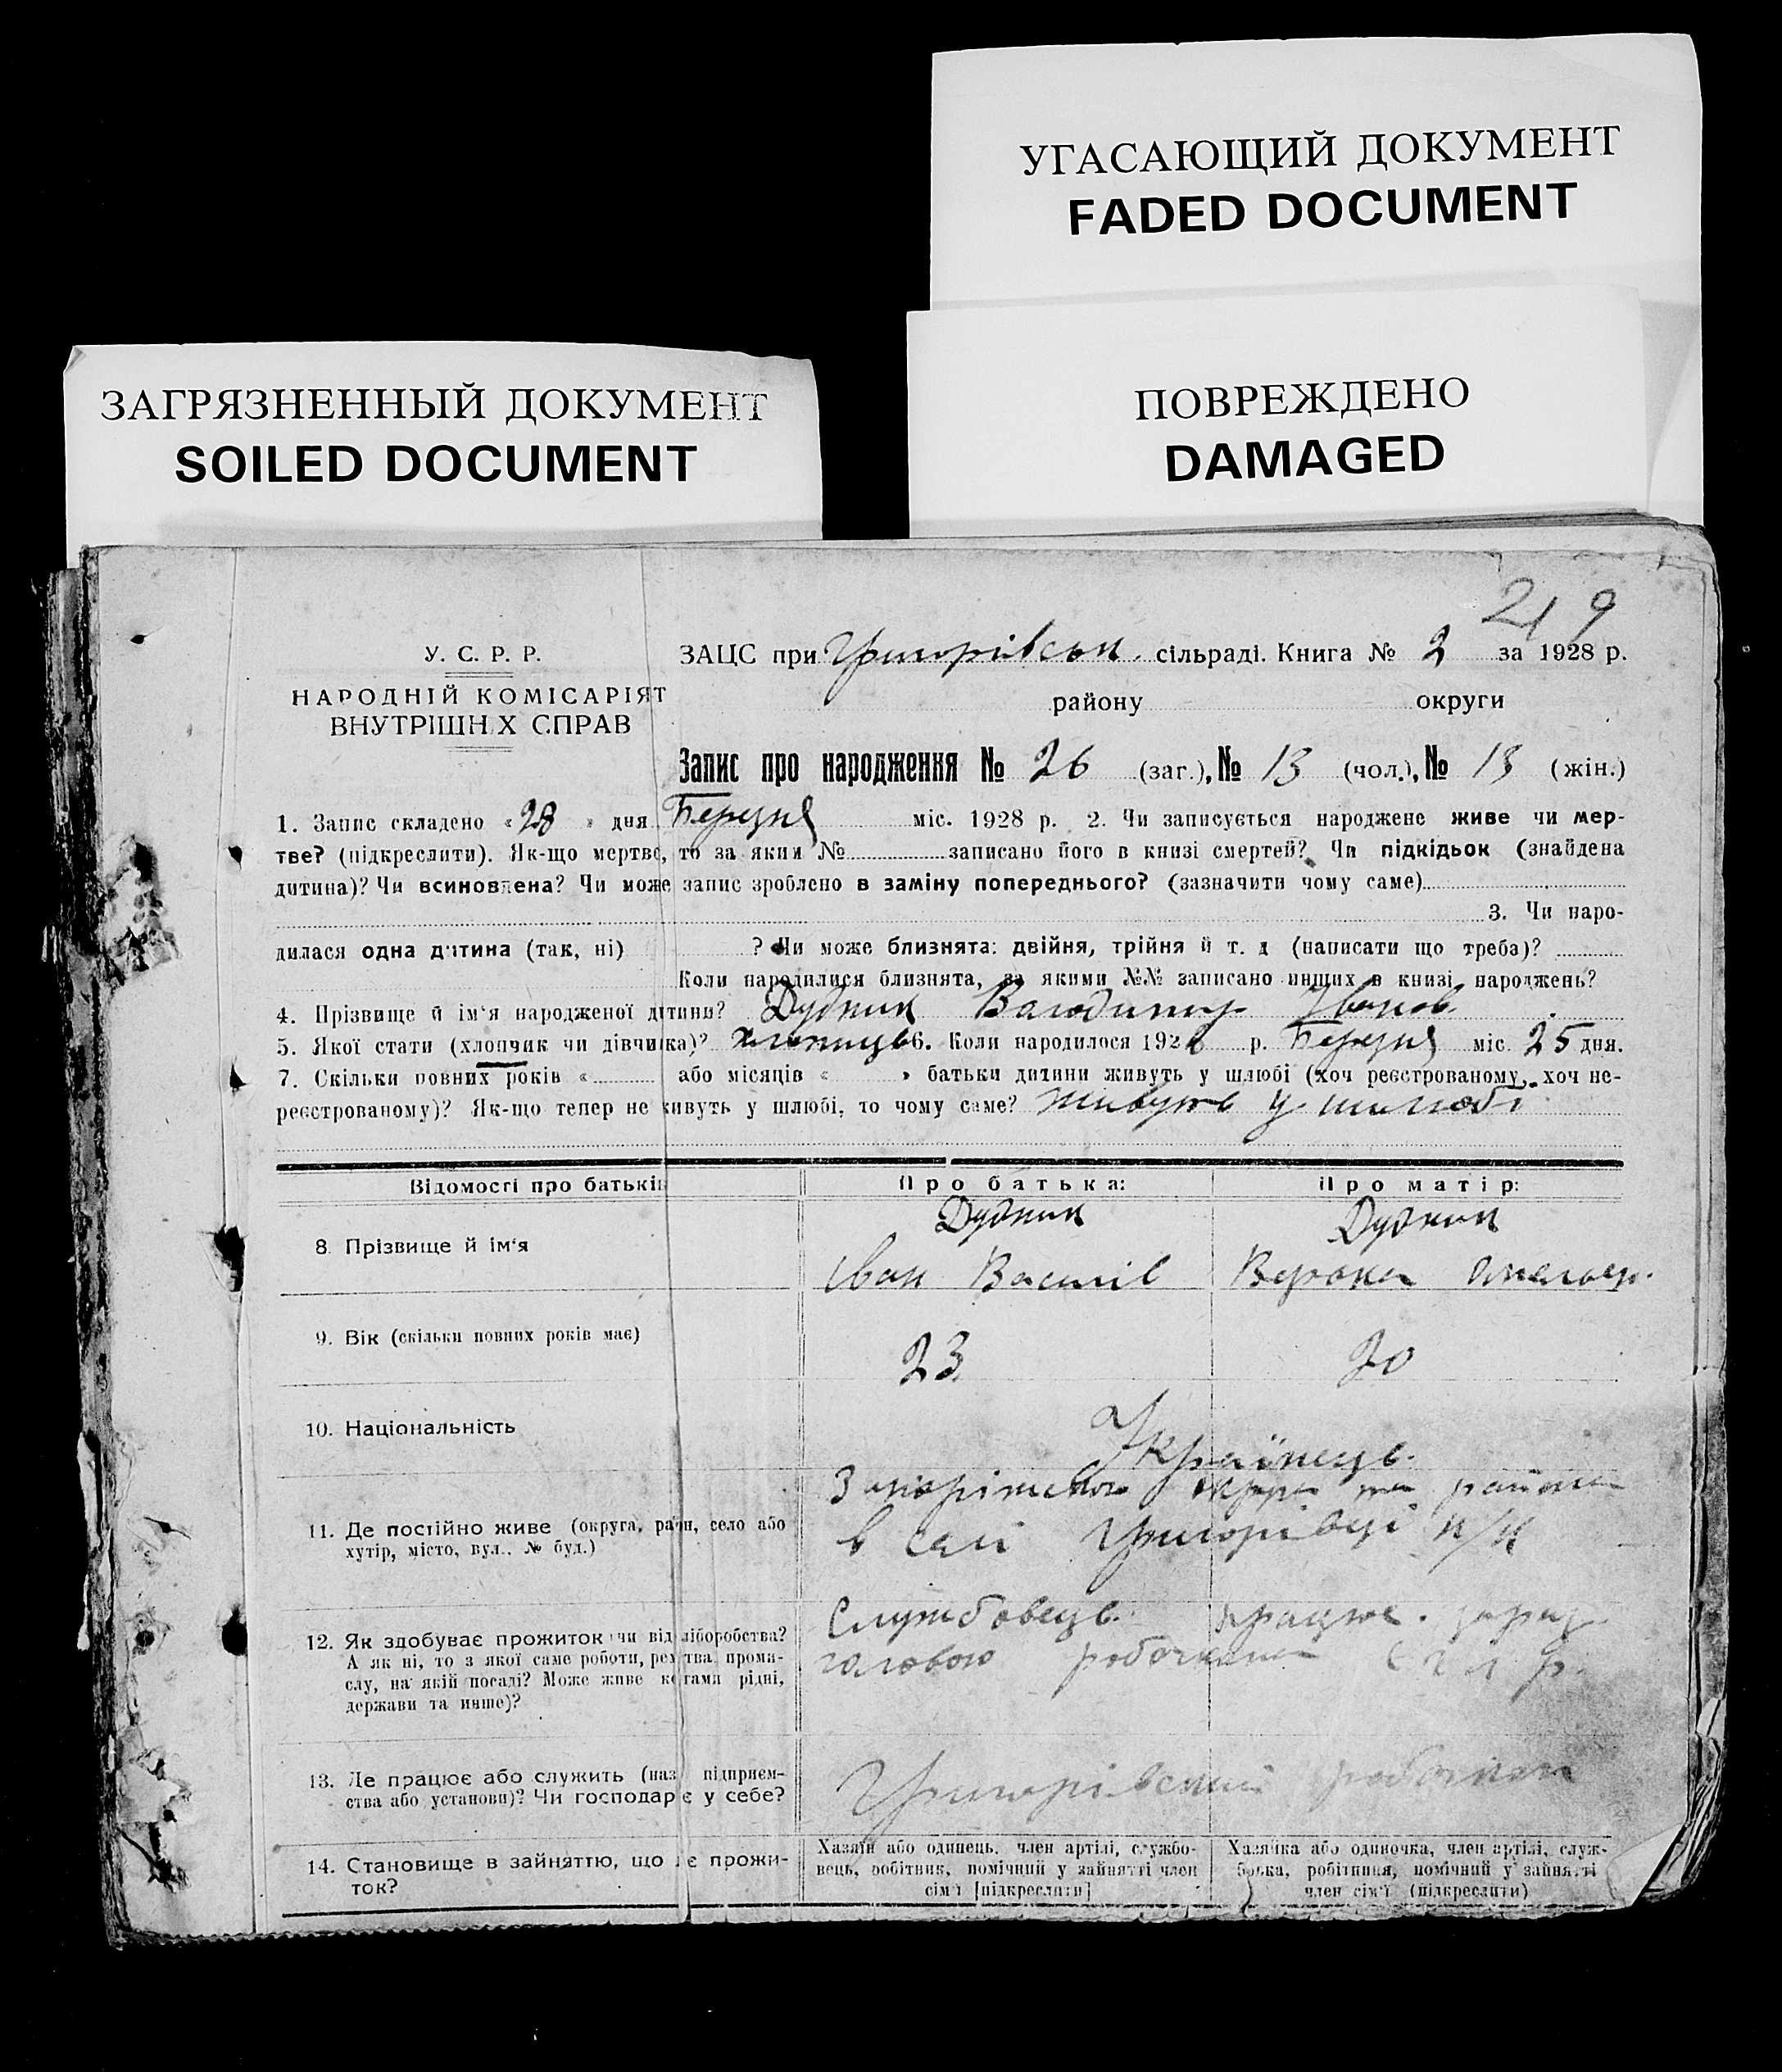 УГАСАЮЩИЙ ДОКУМЕНТ
FADED DOCUMENT
ЗАГРЯЗНЕННЫЙ ДОКУМЕНТ
SOILED DOCUMENT
ПОВРЕЖДЕНО
DAMAGED
219
У. С. Р. Р.
НАРОДНІЙ КОМІСАРІЯТ
ВНУТРІШНІХ СПРАВ
ЗАЦС при Григорівськ. сільраді. Книга № 2 за 1928 р.
району округи
Запис про народження № 26 (заг.), № 13 (чол.), № 13 (жін.)
1. Запис складено «28» дня Березня міс. 1928 р. 2. Чи записується народжене живе чи мер-
тве? (підкреслити). Як-що мертве, то за яким № записано його в книзі смертей? Чи підкідьок (знайдена
дитина)? Чи всиновлена? Чи може запис зроблено в заміну попереднього? (зазначити чому саме)
3. Чи наро-
дилася одна дитина (так, ні) ? Чи може близнята: двійня, трійня й т. д (написати що треба)?
Коли народилися близнята, за якими №№ записано инших в книзі народжень?
4. Прізвище й ім'я народженої дитини? Дудник Володимир Іванов.
5. Якої стати (хлопчик чи дівчинка)? Хлопець 6. Коли народилося 1928 р. Березня міс. 25 дня.
7. Скільки повних років « або місяців « » батьки дитини живуть у шлюбі (хоч реєстрованому, хоч не-
реєстрованому)? Як-що тепер не живуть у шлюбі, то чому саме? живуть у шлюбі
Відомості про батьків
Про батька:
Про матір:
8. Прізвище й ім'я
Дудник
Іван Василів
Дудник
9. Вік (скільки повних років має)
23
20
10. Національність
Українець.
11. Де постійно живе (округа, район, село або
хутір, місто, вул., № буд.)
Запоріжської округи та района
в селі Григорівці
12. Як здобуває прожиток чи від хліборобства?
А як ні, то з якої саме роботи, ремства, проми-
слу, на якій посаді? Може живе коштами рідні,
держави та инше)?
Службовець. працює
головою робочкома
13. Де працює або служить (назва підприєм-
ства або установи)? Чи господарює у себе?
Григорівський робочком
14. Становище в зайняттю, що дає прожи-
ток?
Хазяїн або одинець, член артілі, службо-
вець, робітник, помічний у зайнятті член
сім'ї [підкреслити]
Хазяйка або одиночка, член артілі, служ-
бовка, робітниця, помічний у зайнятті
член сім'ї (підкреслити)